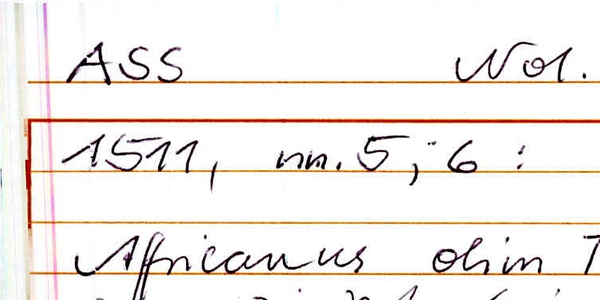 ASS Not.
1511, nn. 5, 6 :
Affricanus olim